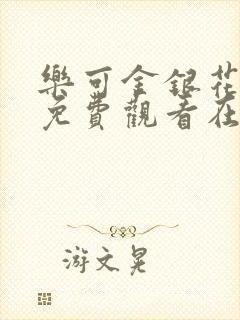 樂可金銀花
免費觀看在
游文晃